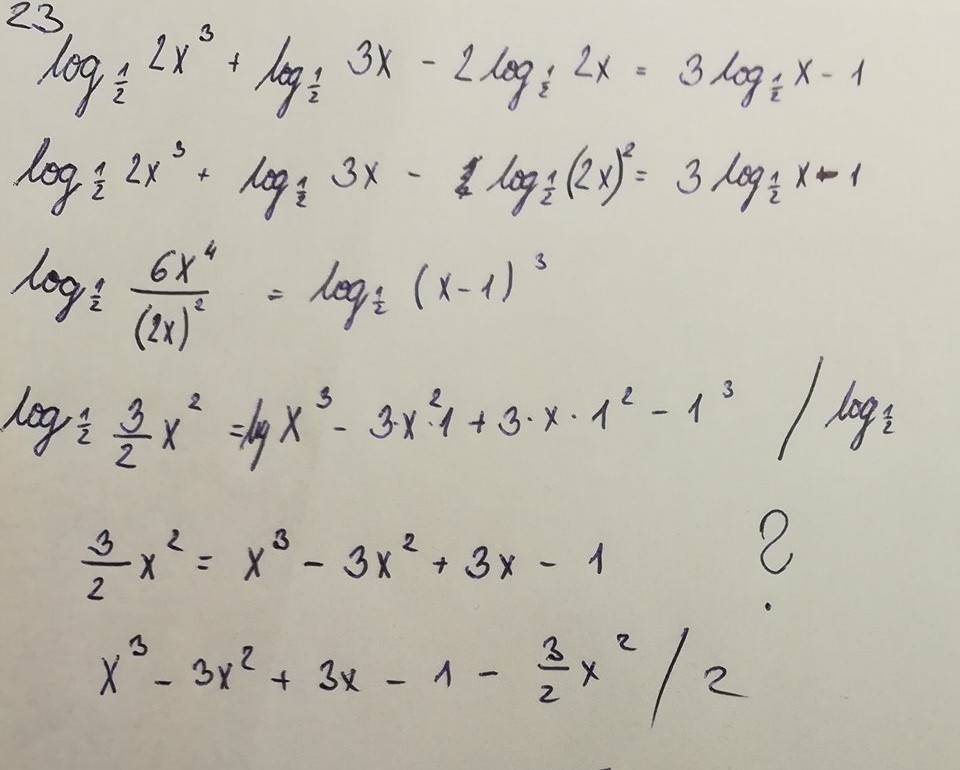 23
log_{1/2} 2x³ + log_{1/2} 3x - 2 log_{1/2} 2x = 3 log_{1/2} x - 1
log_{1/2} 2x³ + log_{1/2} 3x - log_{1/2} (2x)² = 3 log_{1/2} x - 1
log_{1/2} 6x⁴/(2x)² = log_{1/2} (x-1)³
log_{1/2} 3/2 x² = log x³ - 3·x²·1 + 3·x·1² - 1³ / log_{1/2}
3/2 x² = x³ - 3x² + 3x - 1 ?
x³ - 3x² + 3x - 1 - 3/2 x² / 2